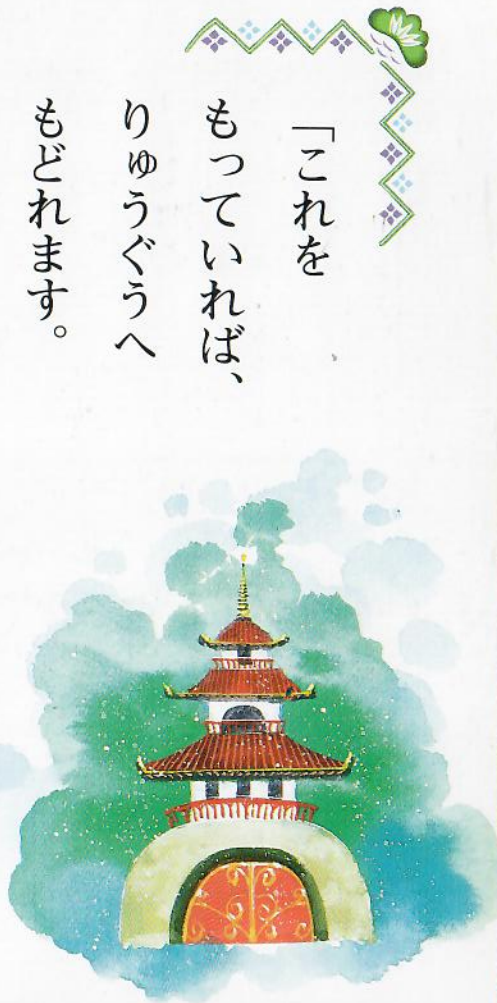 「これを
もっていれば、
りゅうぐうへ
もどれます。